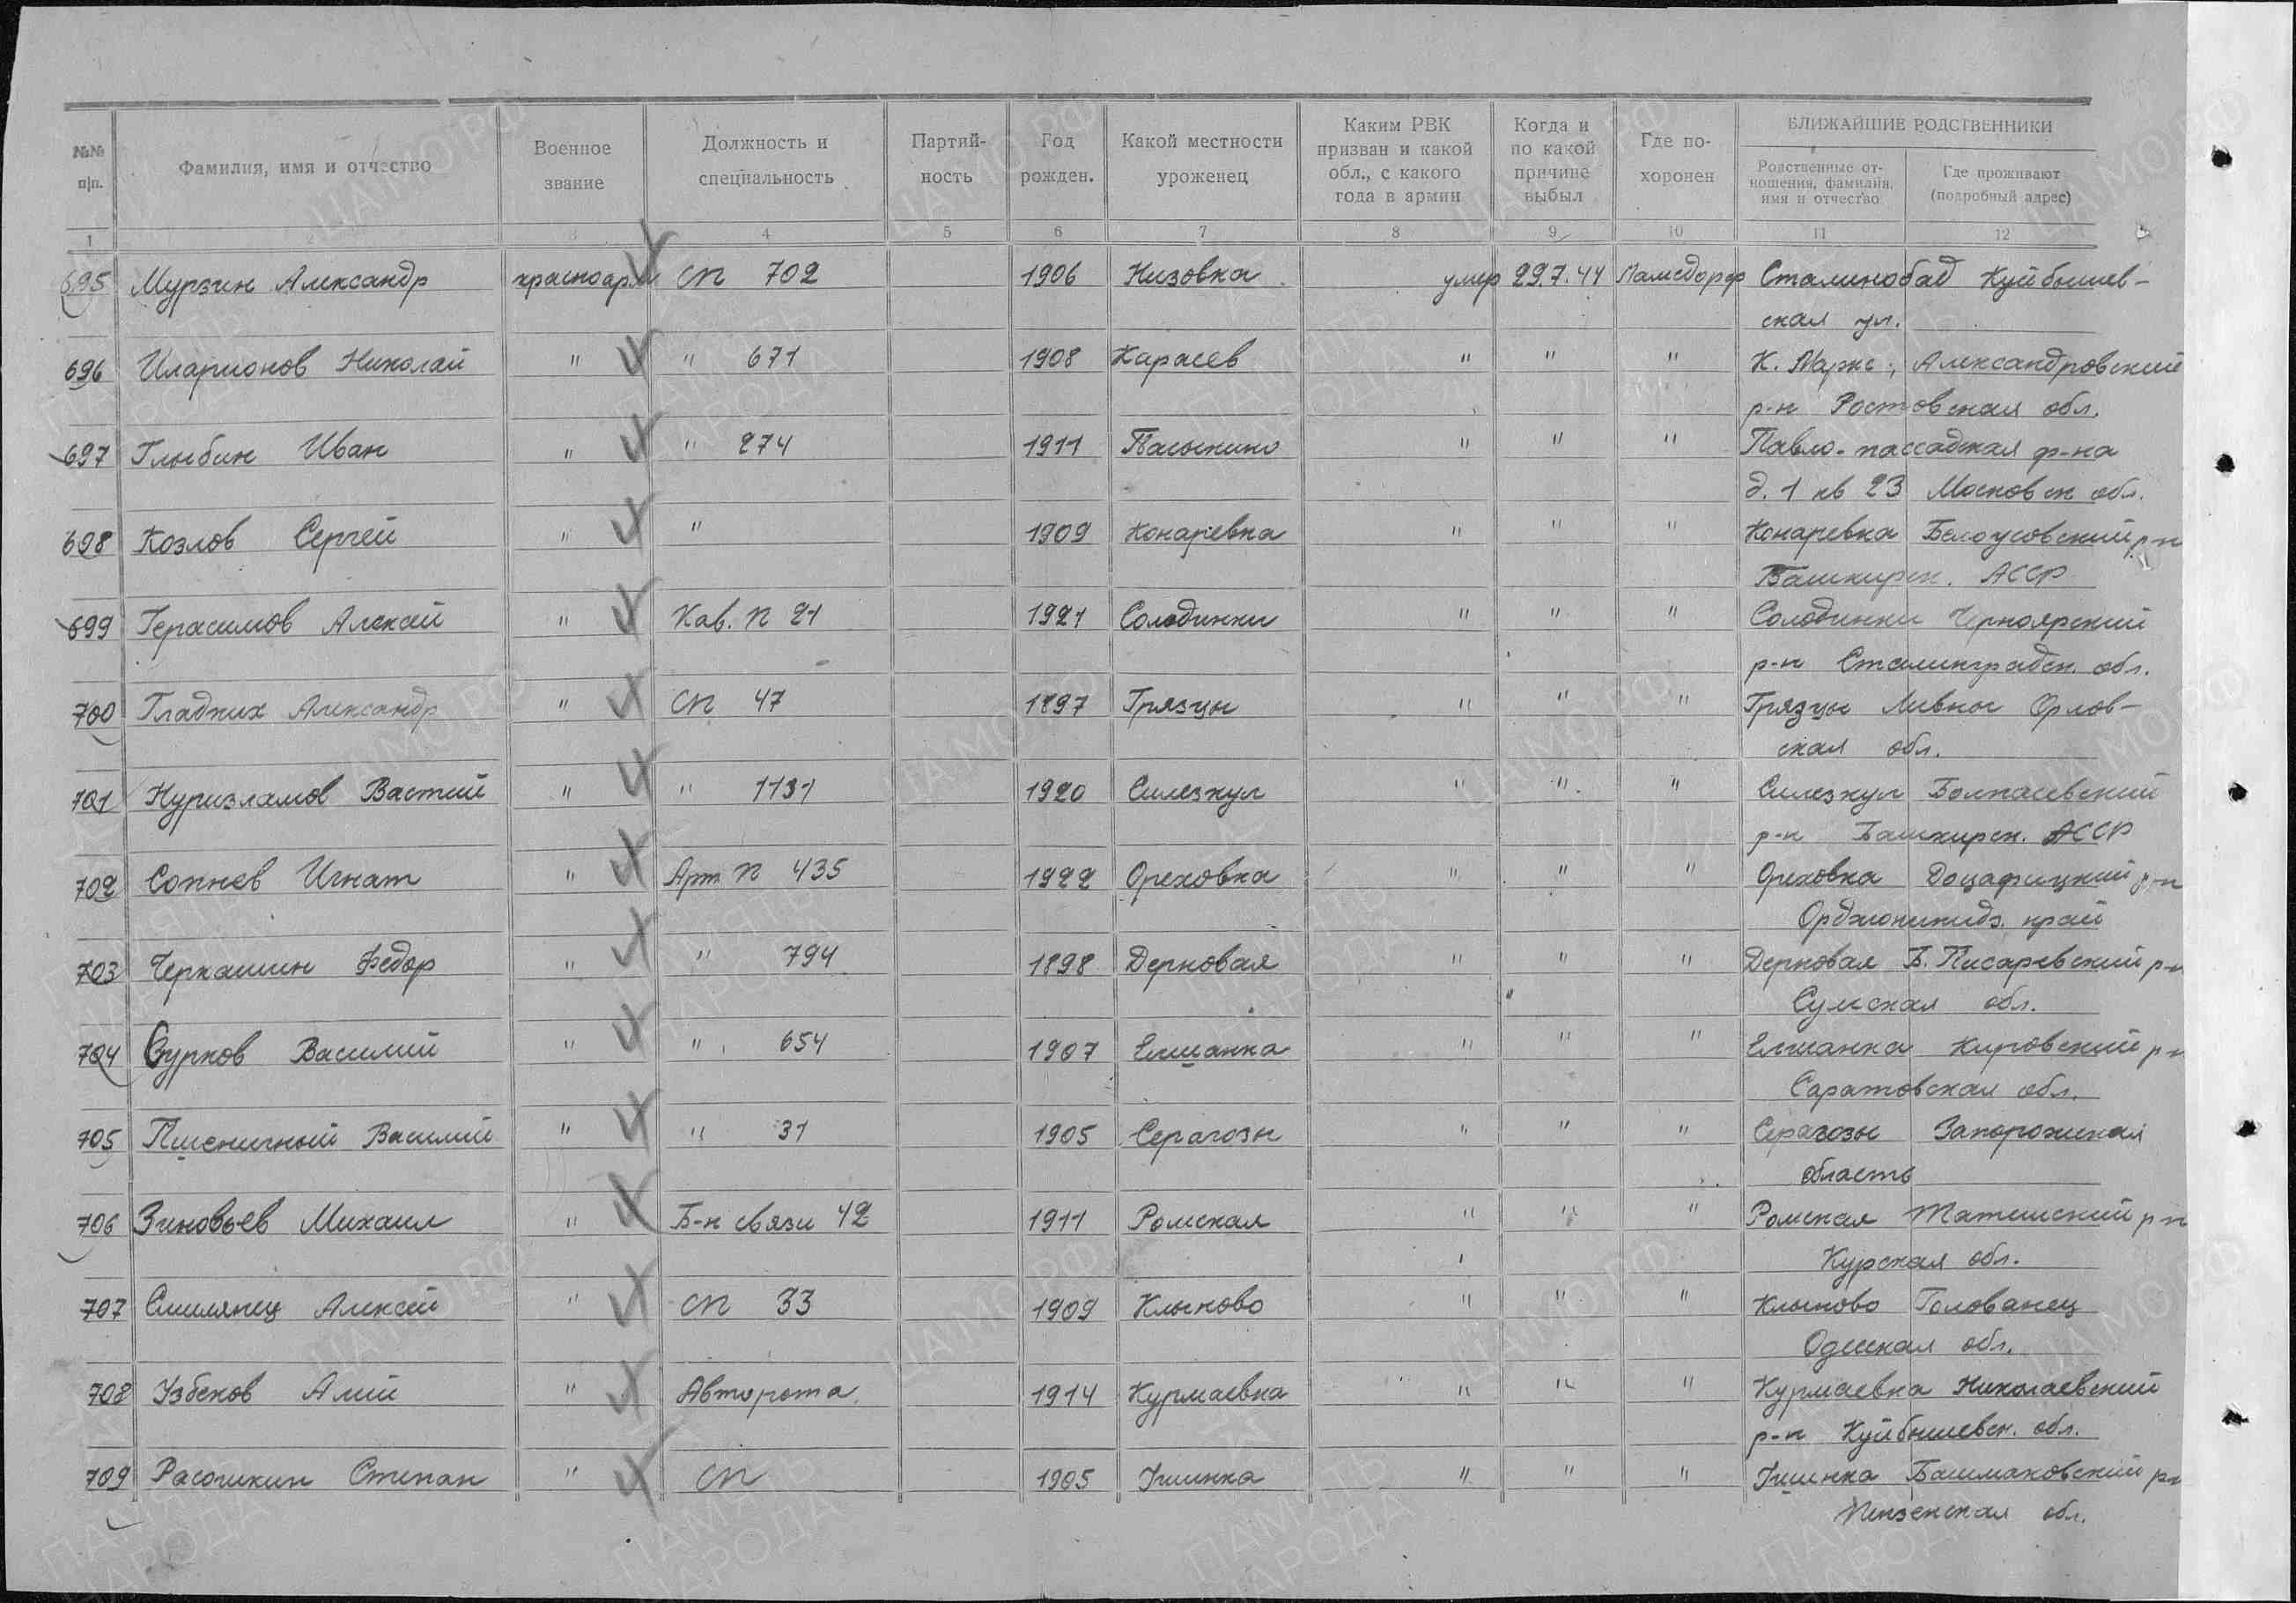 №№ п|п.
Фамилия, имя и отчество
Военное звание
Должность и специальность
Партий-ность
Год рожден.
Какой местности уроженец
Каким РВК призван и какой обл., с какого года в армии
Когда и по какой причине выбыл
Где по-хоронен
БЛИЖАЙШИЕ РОДСТВЕННИКИ
Родственные от-ношения, фамилия, имя и отчество
Где проживают (подробный адрес)
1 2 3 4 5 6 7 8 9 10 11 12
695 Мурзин Александр красноарм СП 702 1906 Низовка умер 29.7.44 Ламсдорф Сталинобад Куйбышев-
ская ул.
696 Иларионов Николай " " 671 1908 Карасев " " " К. Маркс, Александровский
р-н Ростовская обл.
697 Глыбин Иван " " 274 1911 Пасынино " " " Павло-пассадская ф-ка
д. 1 кв 23 Московск обл.
698 Козлов Сергей " " 1909 Конаревка " " " Конаревка Белоусовский р-н
Башкирск. АССР
699 Герасимов Алексей " Кав. п 21 1921 Солодинки " " " Солодинки Черноярский
р-н Сталинградск. обл.
700 Гладких Александр " СП 47 1897 Грязцы " " " Грязцы Ливны Орлов-
ская обл.
701 Нуризламов Вастий " " 1131 1920 Силезкул " " " Силезкул Болтаевский
р-н Башкирск. АССР
702 Сопнев Игнат " Арт п 435 1922 Ореховка " " " Ореховка р-н
Орджоникидз. край
703 Черкашин Федор " " 794 1898 Дерновая " " " Дерновая Б. Писаревский р-н
Сумская обл.
704 Сурков Василий " " 654 1907 Елшанка " " " Елшанка Кировский р-н
Саратовская обл.
705 Пшеничный Василий " " 31 1905 Серагозы " " " Серагозы Запорожская
область
706 Зиновьев Михаил " Б-н связи 42 1911 Ромская " " " Ромская р-н
Курская обл.
707 Смилянец Алексей " СП 33 1909 Клыново " " " Клыново Голованец
Одесская обл.
708 Узбеков Алий " Авторота 1914 Курмаевка " " " Курмаевка Николаевский
р-н Куйбышевск. обл.
709 Расошкин Степан " СП 1905 " " " Башмаковский р-н
Пензенская обл.
ПАМЯТЬ НАРОДА
ЦАМО РФ